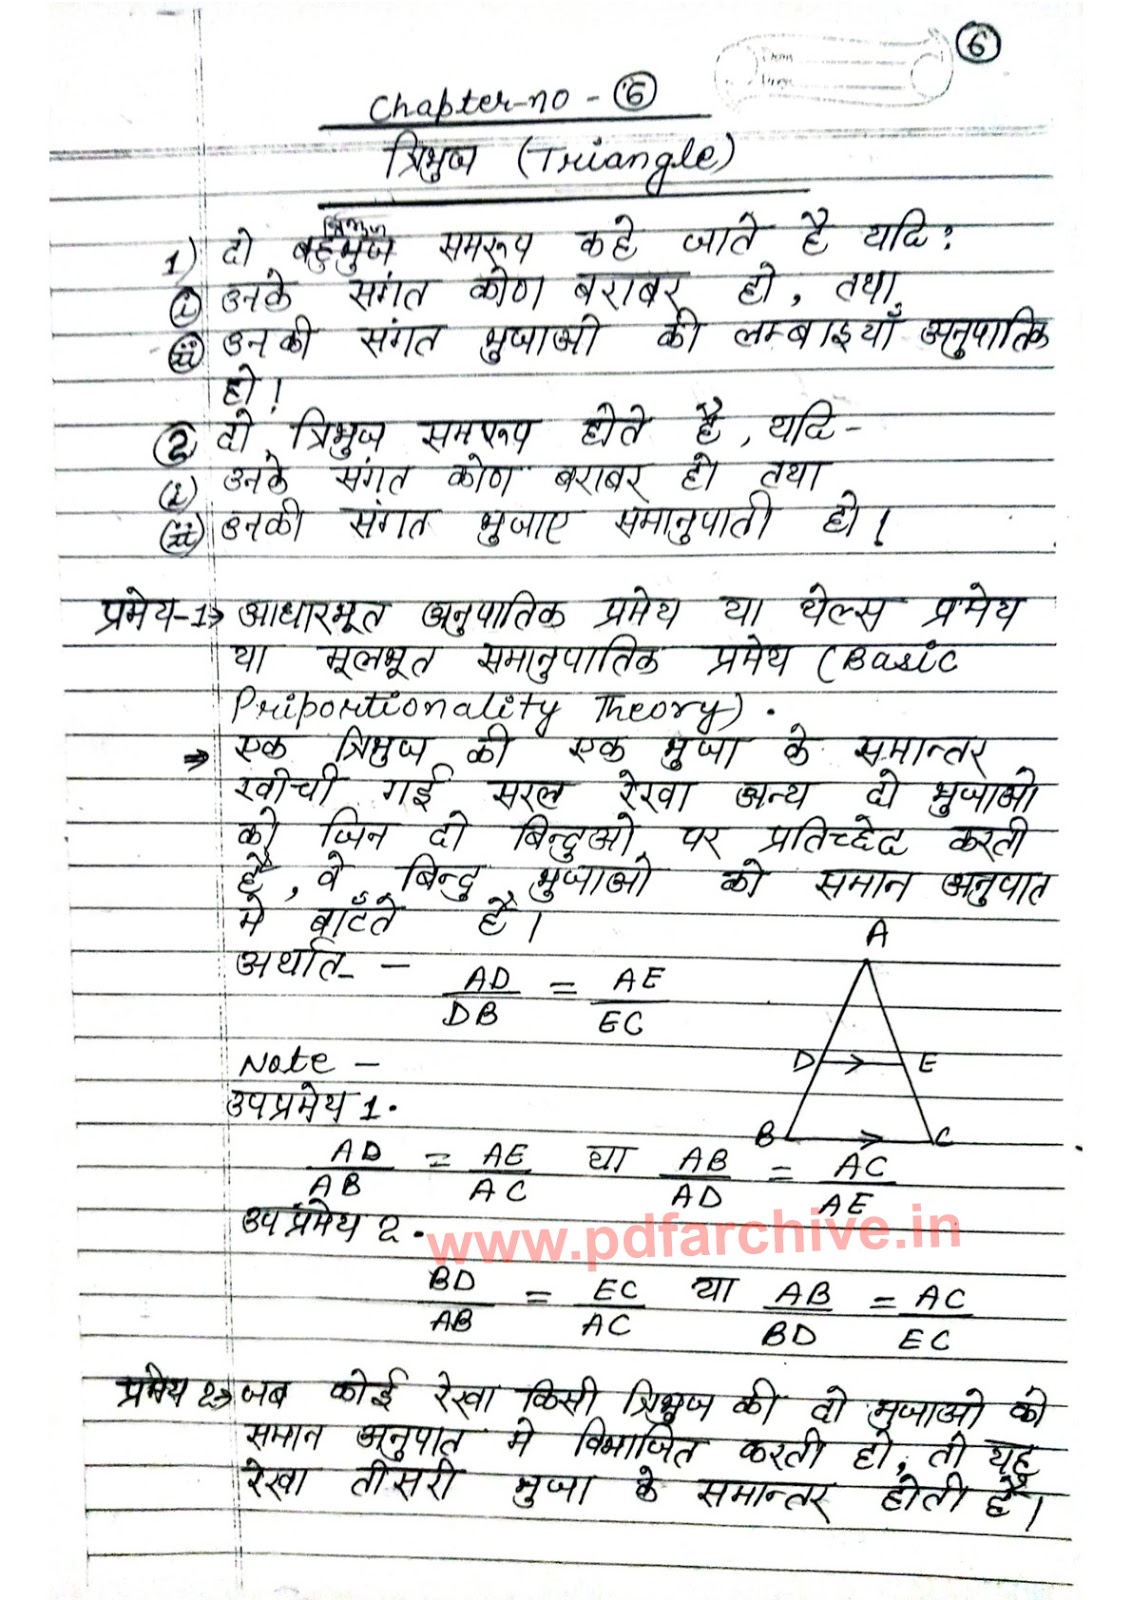 6
Chapter-no - 6
त्रिभुज (Triangle)
त्रिभुज
1) दो बहुभुज समरूप कहे जाते है यदि:
(i) उनके संगत कोण बराबर हो, तथा
(ii) उनकी संगत भुजाओ की लम्बाइयाँ अनुपातिक
हो!
2 दो त्रिभुज समरूप होते है, यदि-
(i) उनके संगत कोण बराबर हो तथा
(ii) उनकी संगत भुजाए समानुपाती हो!
प्रमेय-1→ आधारभूत अनुपातिक प्रमेय या थेल्स प्रमेय
या मूलभूत समानुपातिक प्रमेय (Basic
Priportionality Theory).
⇒ एक त्रिभुज की एक भुजा के समान्तर
खीची गई सरल रेखा अन्य दो भुजाओ
को जिन दो बिन्दुओ पर प्रतिच्छेद करती
है, वे बिन्दु भुजाओ को समान अनुपात
मे बाटँते है।
अर्थात - AD/DB = AE/EC
A
D E
B C
Note -
उपप्रमेय 1.
AD/AB = AE/AC या AB/AD = AC/AE
उपप्रमेय 2.
www.pdfarchive.in
BD/AB = EC/AC या AB/BD = AC/EC
प्रमेय 2→ जब कोई रेखा किसी त्रिभुज की दो भुजाओ को
समान अनुपात मे विभाजित करती हो, तो यह
रेखा तीसरी भुजा के समान्तर होती है।